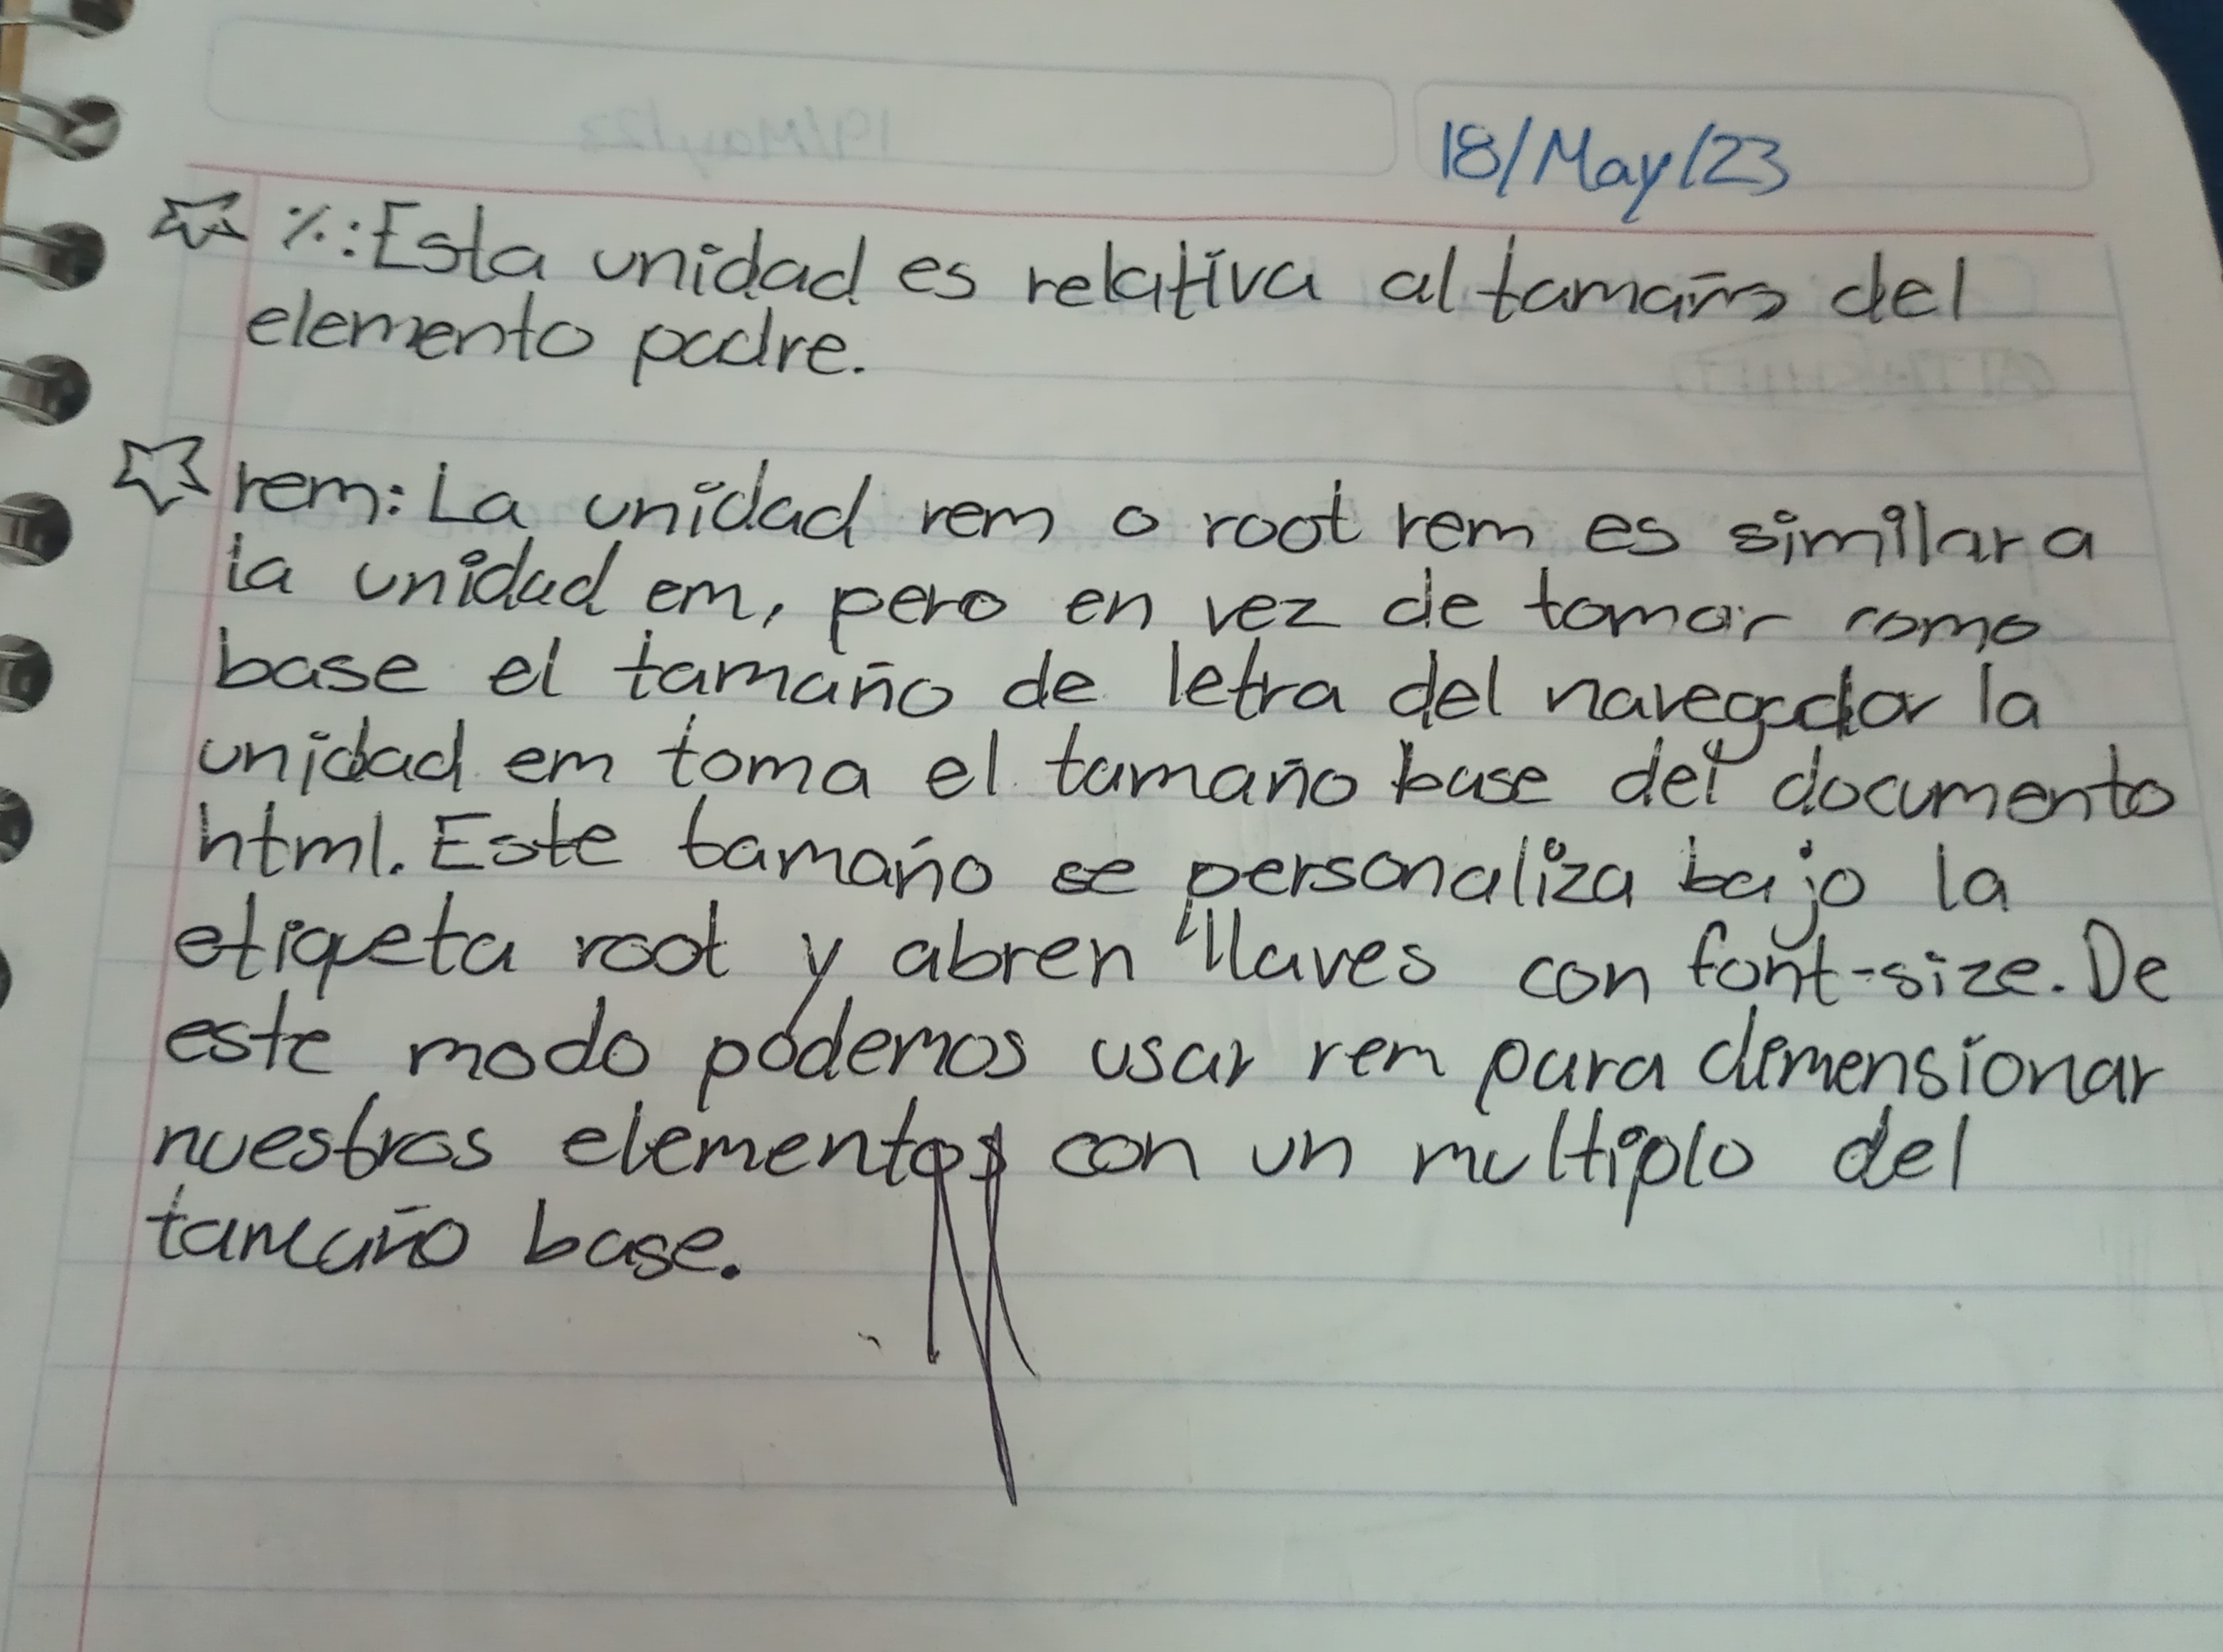 18/May/23
%: Esta unidad es relativa al tamaño del
elemento padre.
rem: La unidad rem o root rem es similar a
la unidad em, pero en vez de tomar como
base el tamaño de letra del navegador la
unidad em toma el tamaño base del documento
html. Este tamaño se personaliza bajo la
etiqueta root y abren llaves con font-size. De
este modo podemos usar rem para dimensionar
nuestros elementos con un multiplo del
tamaño base.